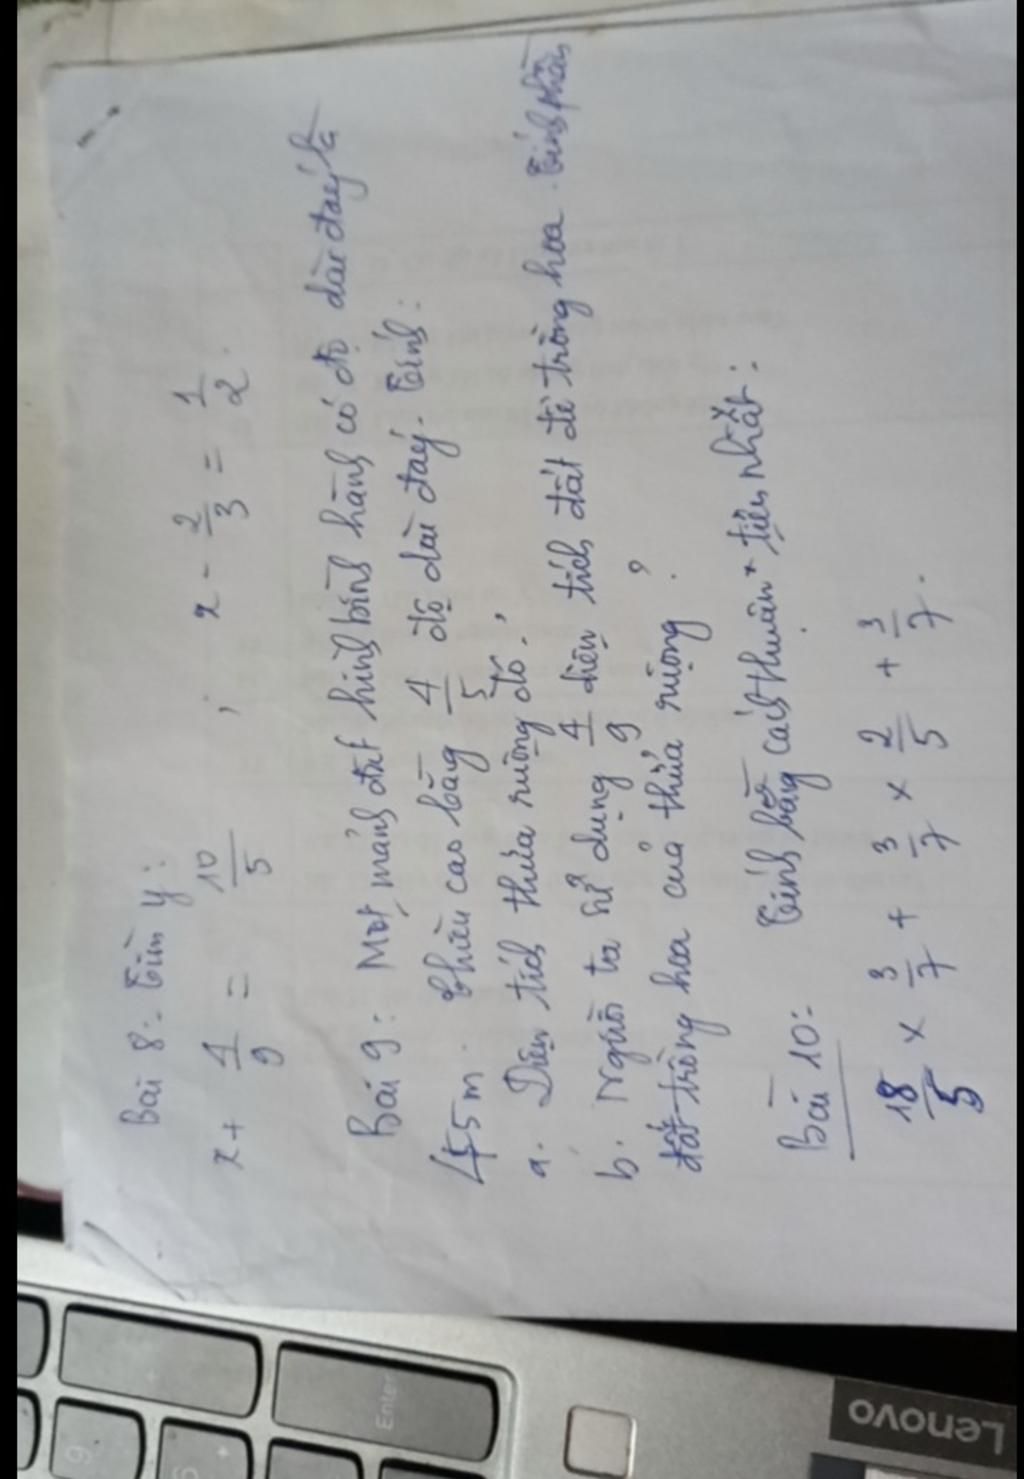 Bài 8:- Tìm y:
x + 4/9 = 10/5 ; x - 2/3 = 1/2.
Bài 9: Một mảnh đất hình bình hành có độ dài đáy là
45m. Chiều cao bằng 4/5 độ dài đáy. Tính:
a. Diện tích thửa ruộng đó.
b. Người ta sử dụng 4/9 diện tích đất để trồng hoa. Tính phần
đất trồng hoa của thửa ruộng ?
Bài 10:- Tính bằng cách thuận tiện nhất:
18/5 x 3/7 + 3/7 x 2/5 + 3/7.
Enter
9
+
Lenovo